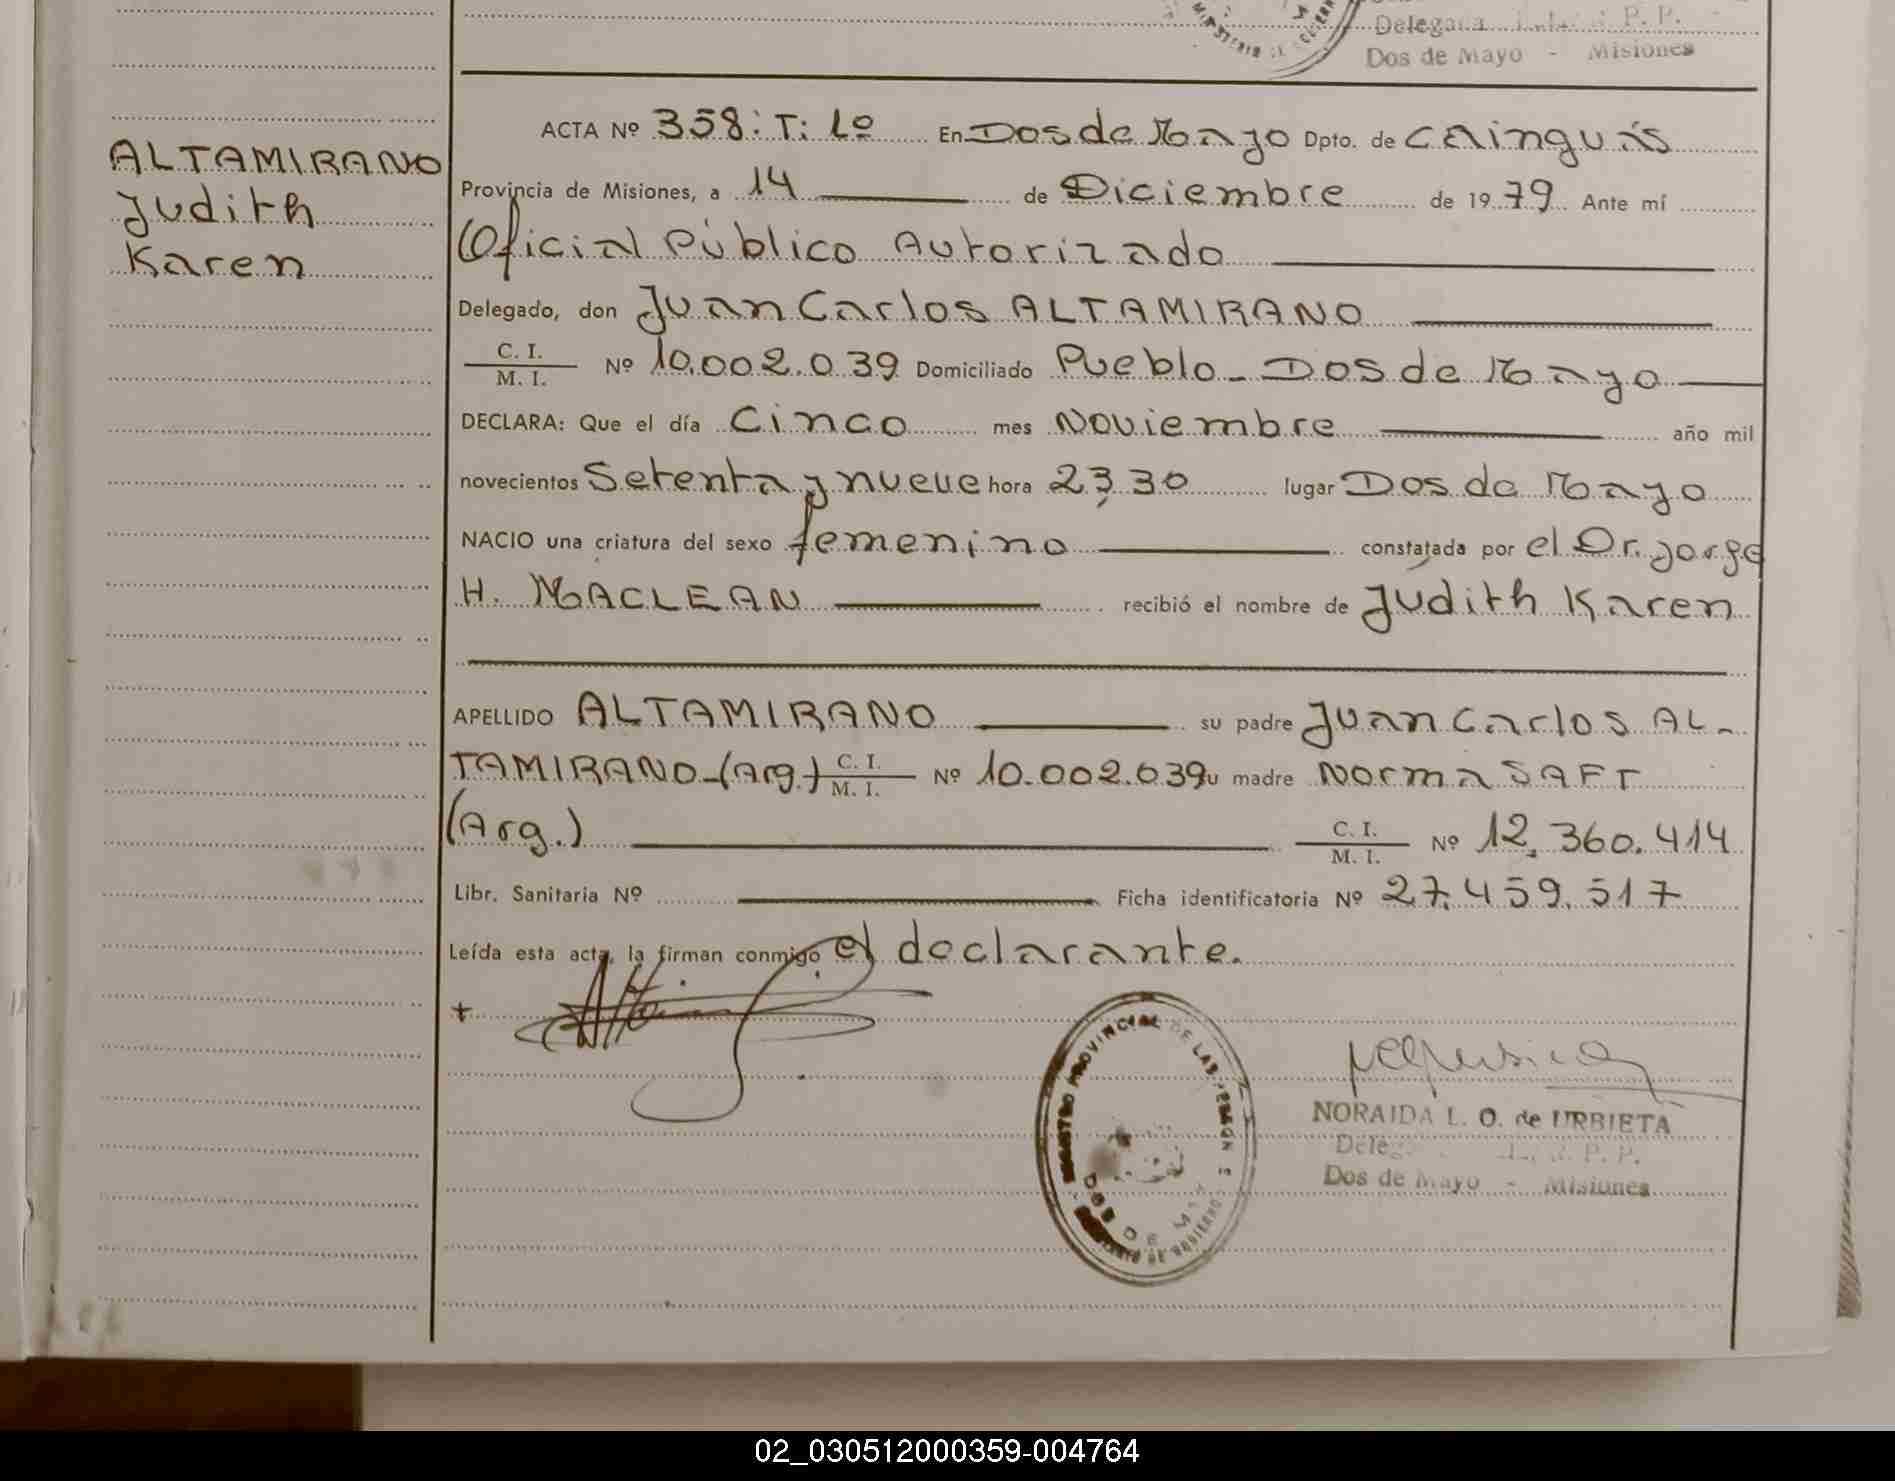 Delegada P. P.
Dos de Mayo - Misiones
ALTAMIRANO
Judith
Karen
ACTA Nº 358: T: Lº En Dos de Mayo Dpto. de Cainguás
Provincia de Misiones, a 14 de Diciembre de 1979 Ante mí
Oficial Público Autorizado
Delegado, don Juan Carlos ALTAMIRANO
C. I.
M. I. Nº 10.002.039 Domiciliado Pueblo - Dos de Mayo
DECLARA: Que el día Cinco mes Noviembre año mil
novecientos Setenta y nueve hora 23,30 lugar Dos de Mayo
NACIO una criatura del sexo femenino constatada por el Dr. Jorge
H. MACLEAN recibió el nombre de Judith Karen
APELLIDO ALTAMIRANO su padre Juan Carlos AL-
TAMIRANO-(Arg.) C. I. M. I. Nº 10.002.039 u madre Norma SAFT
(Arg.) C. I. M. I. Nº 12,360.414
Libr. Sanitaria Nº Ficha identificatoria Nº 27.459.517
Leída esta acta, la firman conmigo el declarante.
REGISTRO PROVINCIAL DE LAS PERSONAS
DOS DE MAYO
MINISTERIO DE GOBIERNO
NORAIDA L. O. de URBIETA
P. P.
Dos de Mayo - Misiones
02_030512000359-004764